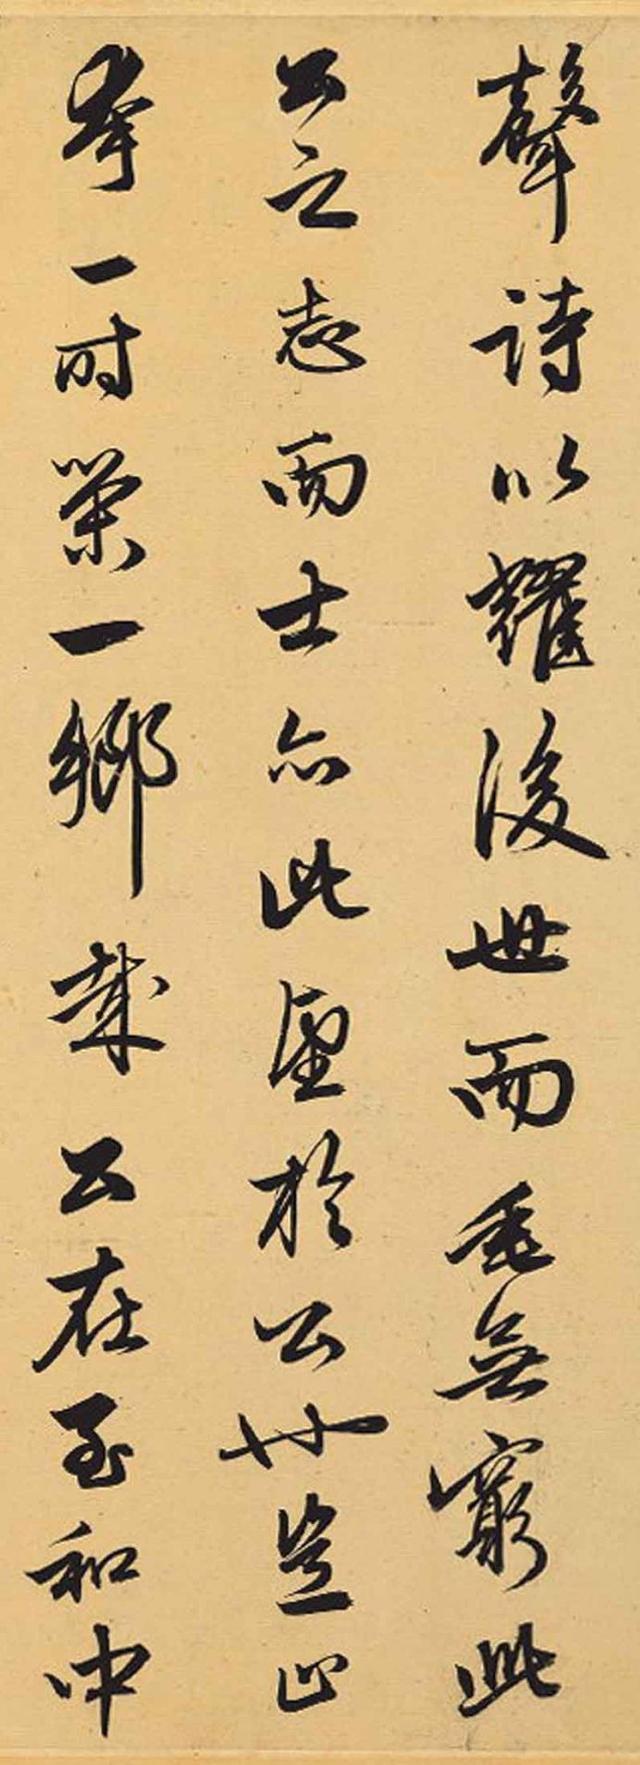 聲詩以耀後世而垂無窮此
公之志而士亦此望於公也豈止
夸一時榮一鄉哉公在至和中